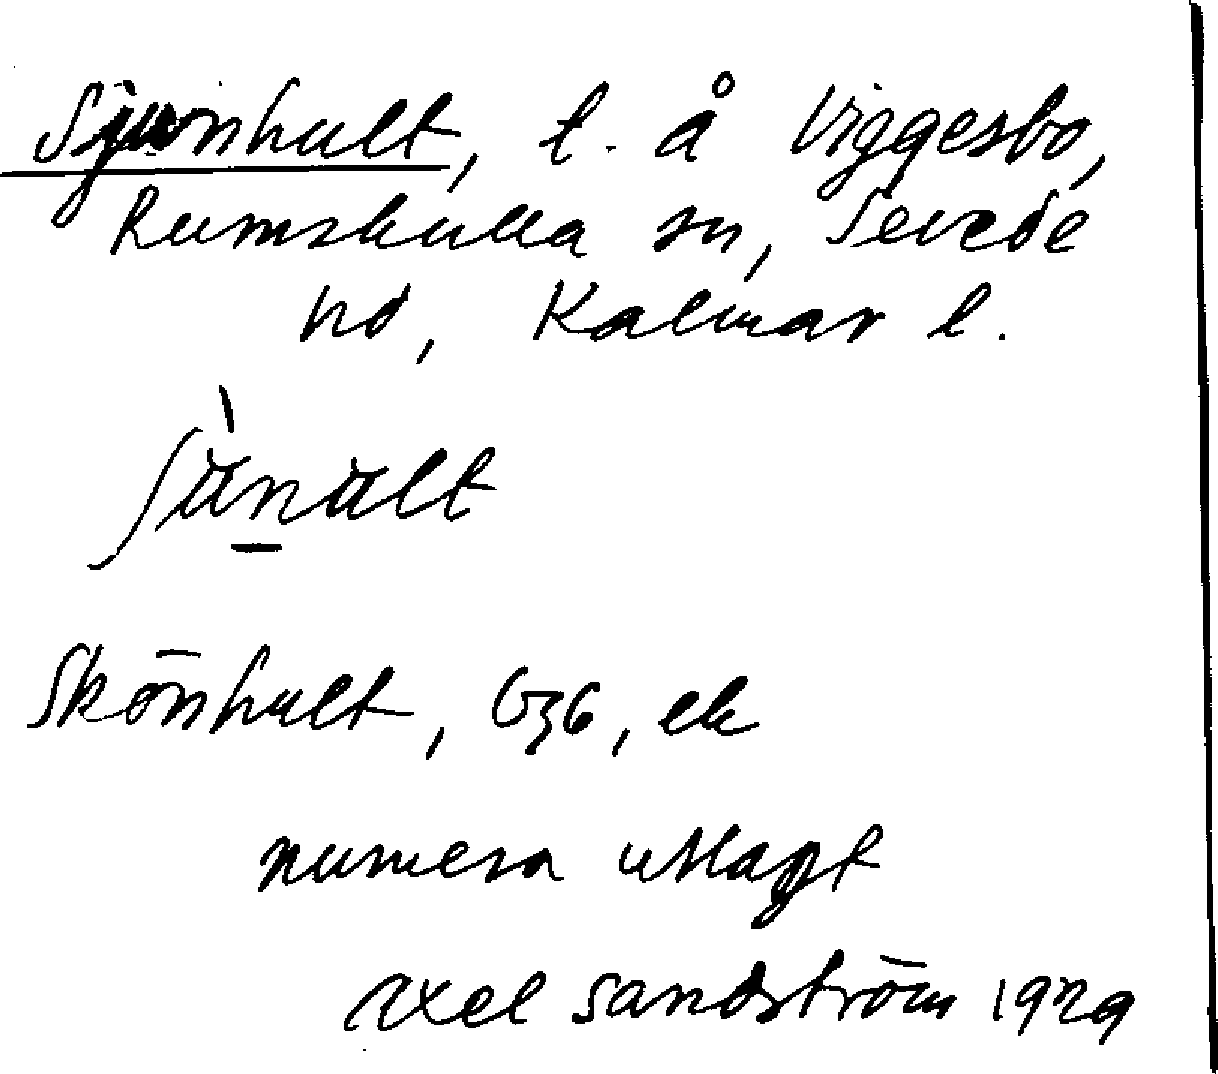 Sjunhult, t. å Viggesbo,
Rumskulla sn, Sevede
hd, Kalmar l.
Skönhult, G36, ek
numera utlagt
Axel Sandström 1929